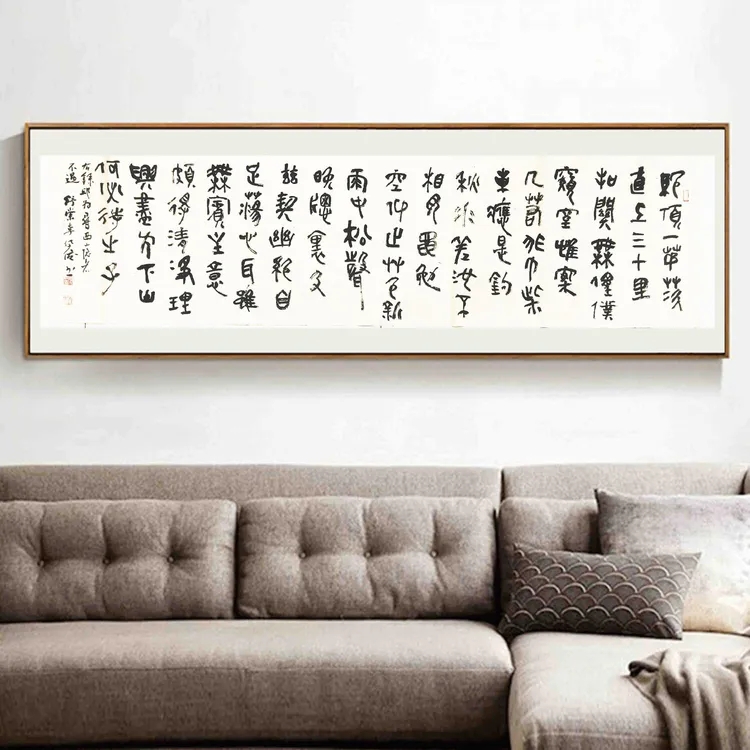 絕頂一茅茨
直上三十里
扣關無僮僕
窺室惟案
几若非巾柴
車應是釣
秋水差池不
相見黽勉
空仰止艸色新
雨中松聲
晚牕裏及
茲契幽絕自
足蕩心耳雖
無賓主意
頗得清淨理
興盡方下山
何必待之子
右錄邱为尋西山隐者
不遇